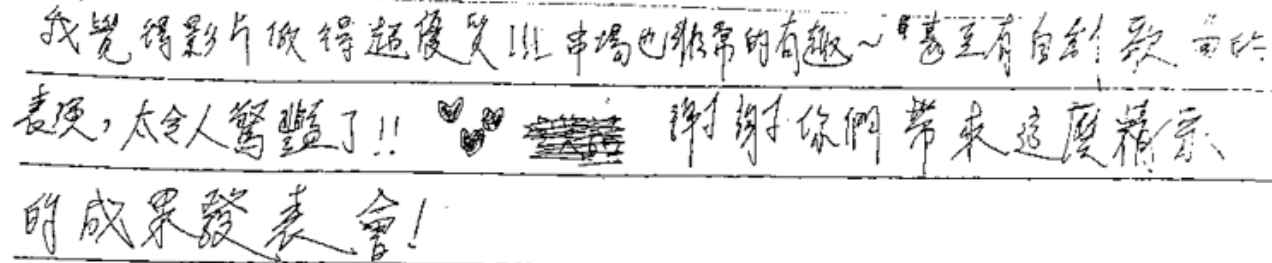 我覺得影片做得超優質!!! 串場也非常的有趣~甚至有自創歌曲的
表演，太令人驚豔了!! 謝謝你們帶來這麼精采
的成果發表會!